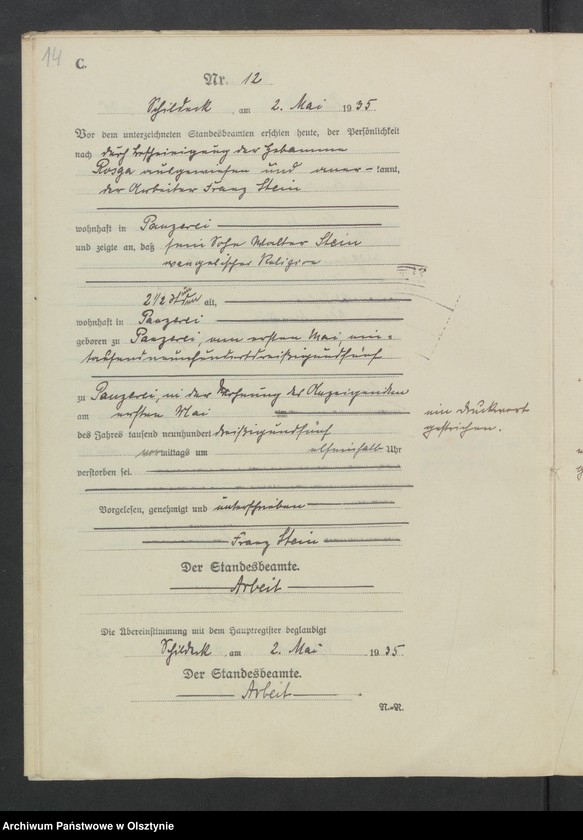 14
C.
Nr. 12
Schildeck, am 2. Mai 1935
Vor dem unterzeichneten Standesbeamten erschien heute, der Persönlichkeit
nach durch Bescheinigung der Hebamme
Rosga ausgewiesen und aner- kannt,
der Arbeiter Franz Stein
wohnhaft in Panzerei
und zeigte an, daß sein Sohn Walter Stein
evangelischer Religion
2 1/2 Stunden alt,
wohnhaft in Panzerei
geboren zu Panzerei, am ersten Mai, ein-
tausendneunhundertdreißigundfünf
zu Panzerei, in der Wohnung des Anzeigenden
am ersten Mai
des Jahres tausend neunhundert dreißigundfünf
vormittags um elfeinhalb Uhr
verstorben sei.
ein Druckwort
gestrichen.
Vorgelesen, genehmigt und unterschrieben
Franz Stein
Der Standesbeamte.
Arbeit
Die Übereinstimmung mit dem Hauptregister beglaubigt
Schildeck, am 2. Mai 1935
Der Standesbeamte.
Arbeit
N.-R.
Archiwum Państwowe w Olsztynie